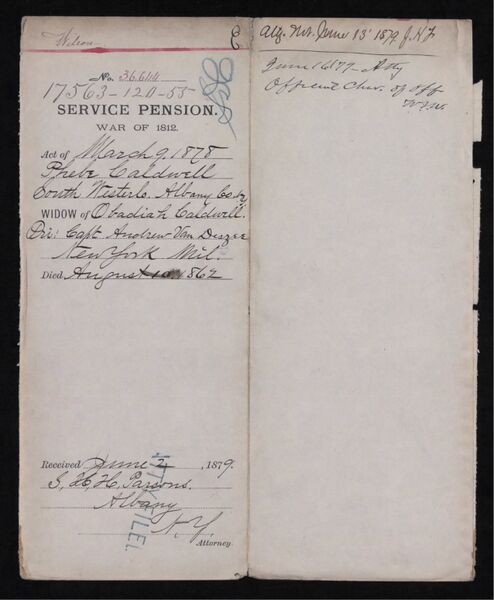 Wilson
No. 36.644
17563-120-55
SERVICE PENSION.
WAR OF 1812.
Act of March 9, 1878
Phebe Caldwell
South Westerlo, Albany Co. N.Y.
WIDOW of Obadiah Caldwell.
Pri: Capt Andrew Van
New York Mil.
Died August 10, 1862
Received June 2, 1879.
S. H. H. Parsons.
Albany
N.Y.
Attorney.
FILED
Atty. Not. June 13' 1879 J.H.F.
June 16/79 - Atty
of off